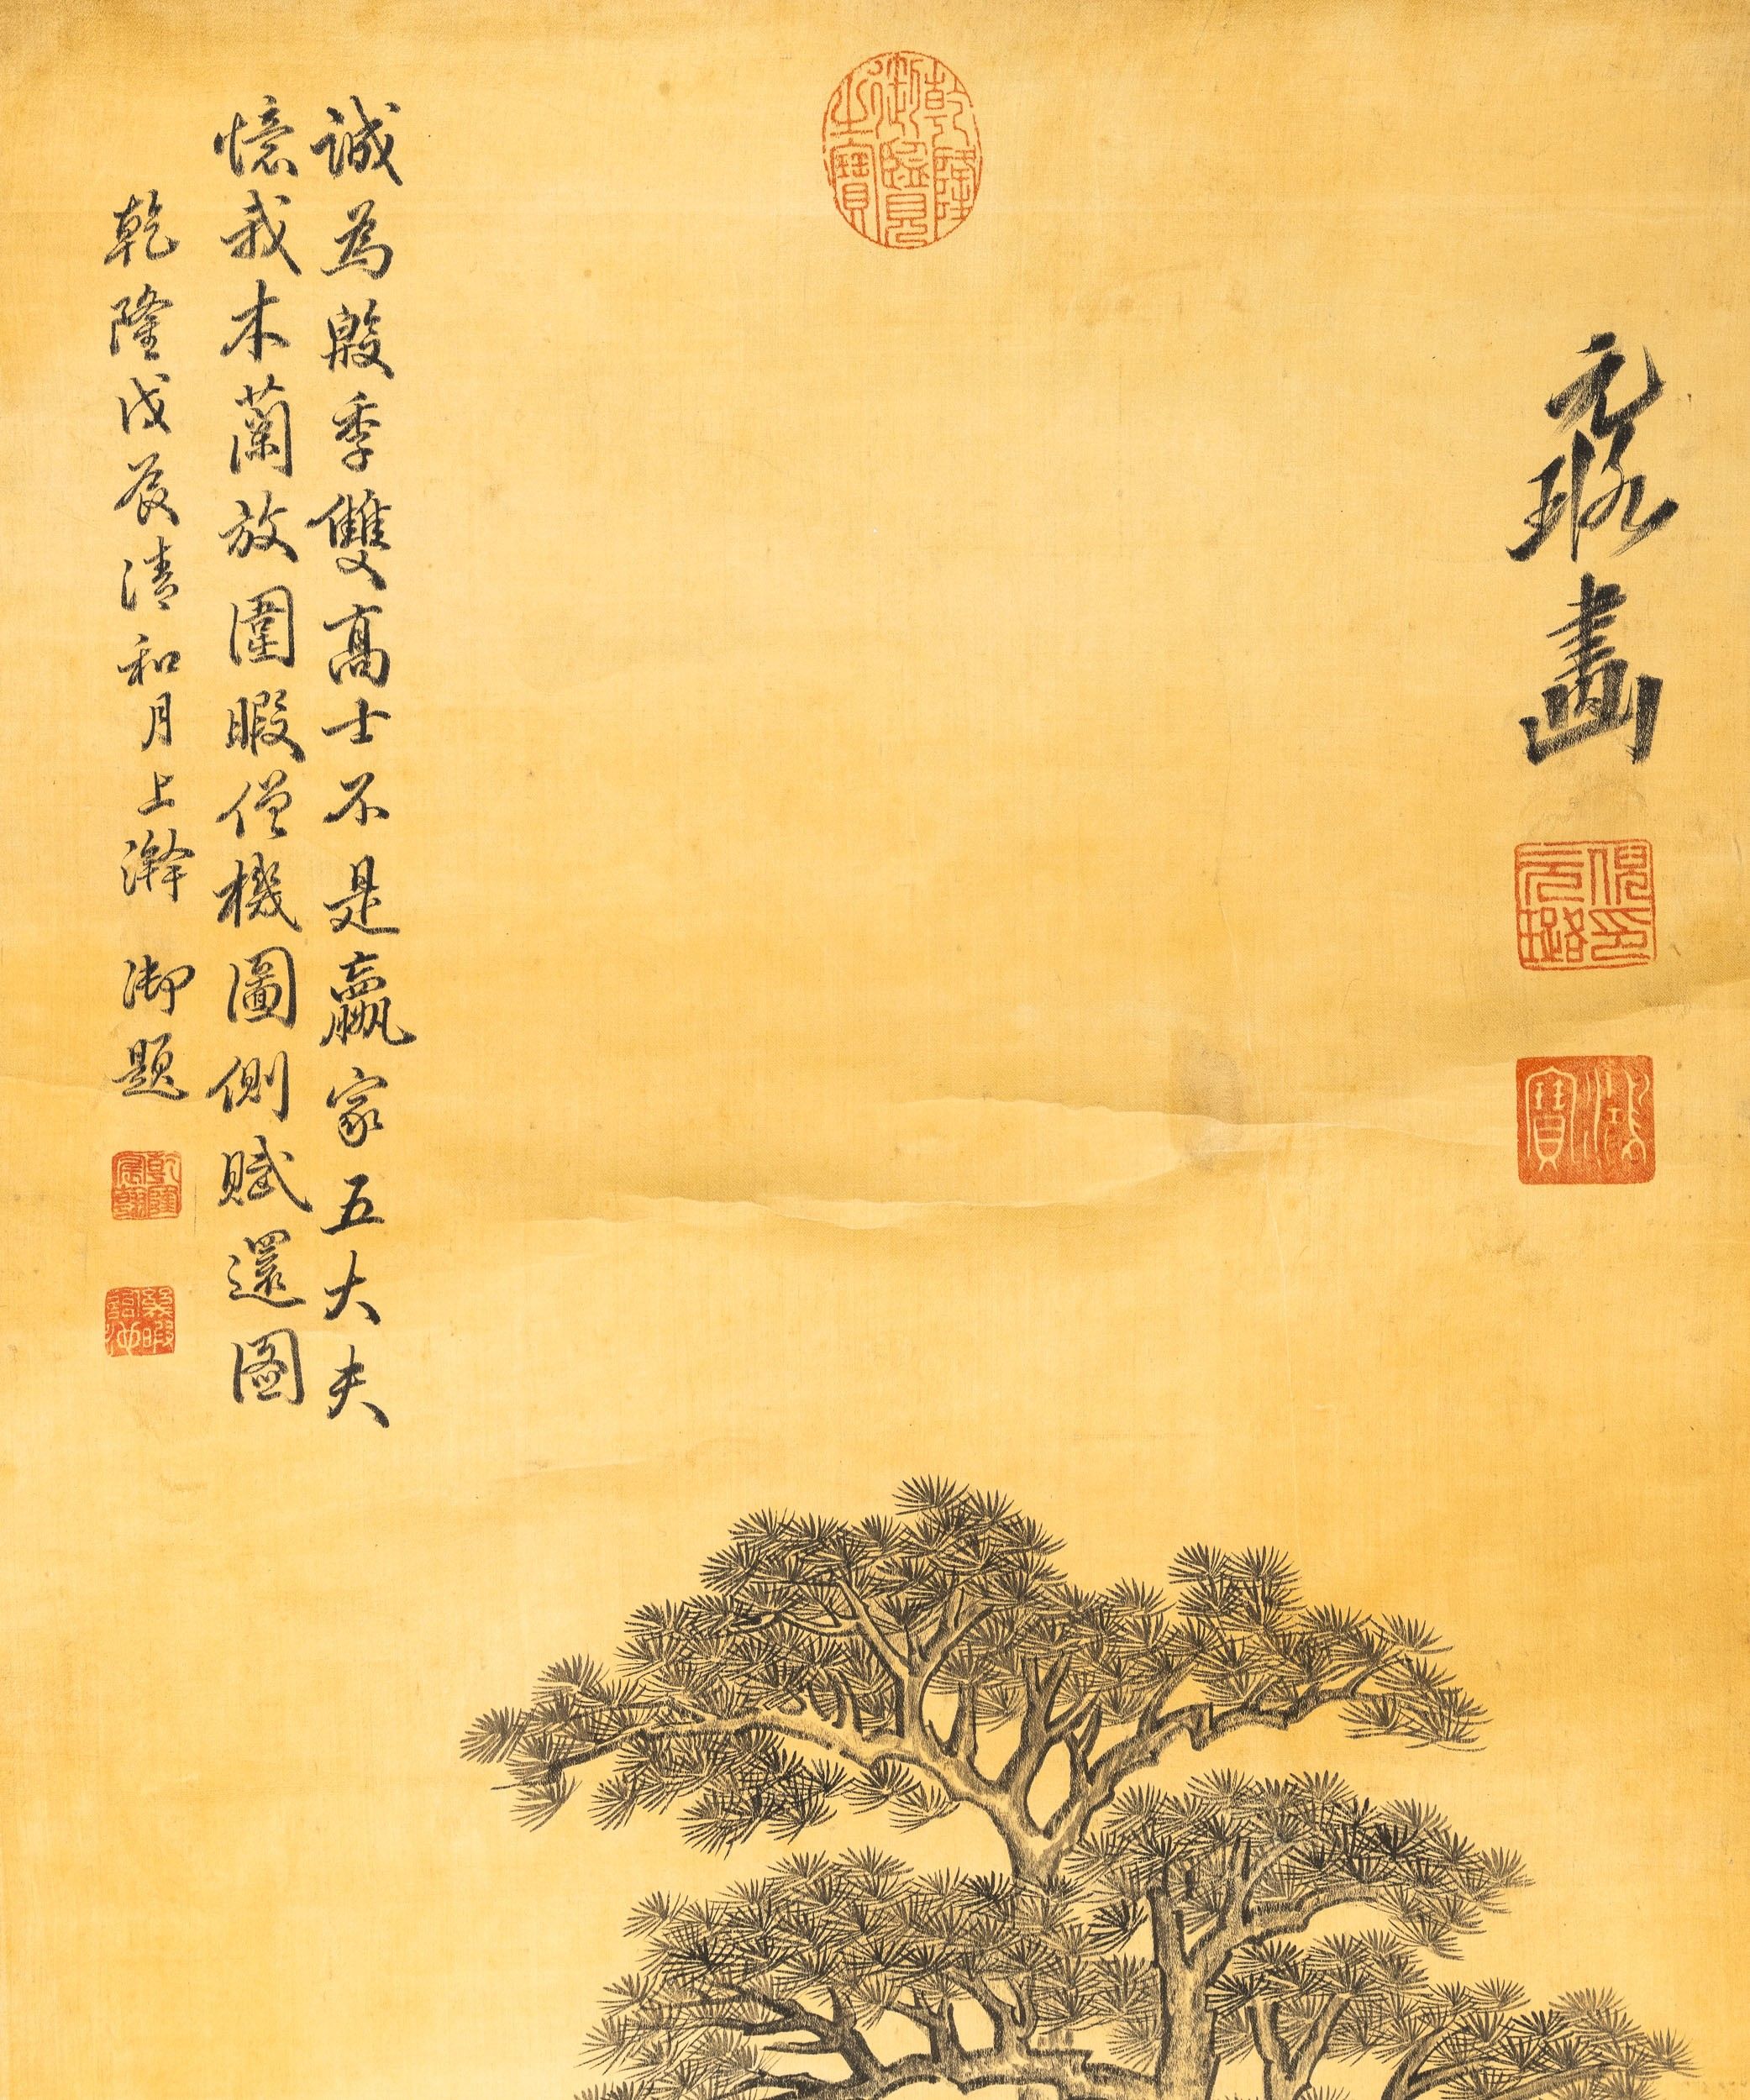 元璐畫
倪元璐印
鴻寶
乾隆御覽之寶
誠為殷季雙高士不是嬴家五大夫
憶我木蘭放圍暇僧機圖側賦還圖
乾隆戊辰清和月上澣 御題
乾隆宸翰